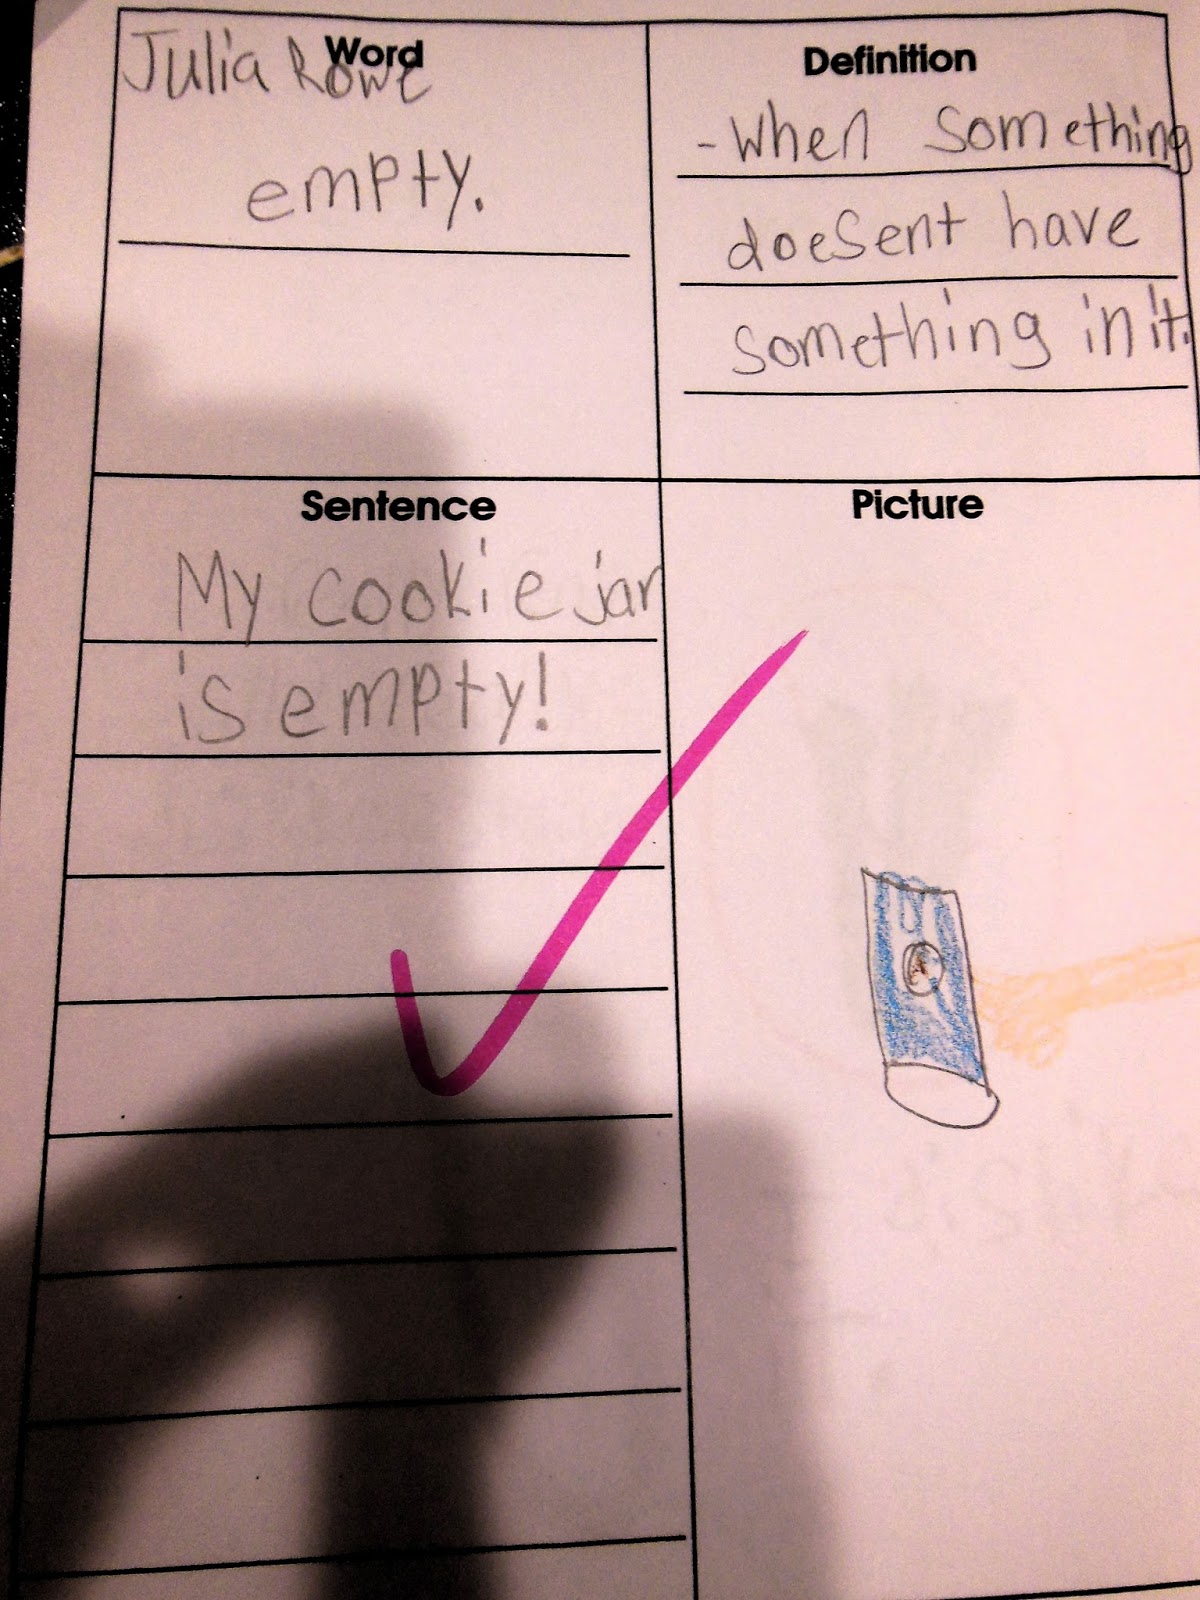 Word
Julia Rowe
empty.
Definition
- When something
doesent have
something in it.
Sentence
My cookie jar
is empty!
Picture